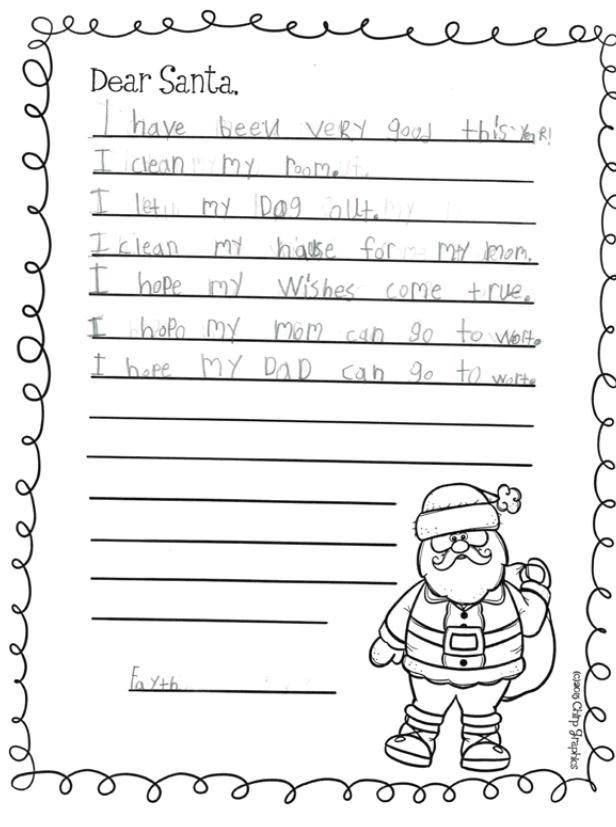 Dear Santa,
I have been very good this YeaR!
I clean my room.
I let my Dog out.
I clean my house for my mom.
I hope my Wishes come true.
I hope my mom can go to work.
I hope MY DaD can go to work.
Fayth
(c)2015 Chirp Graphics